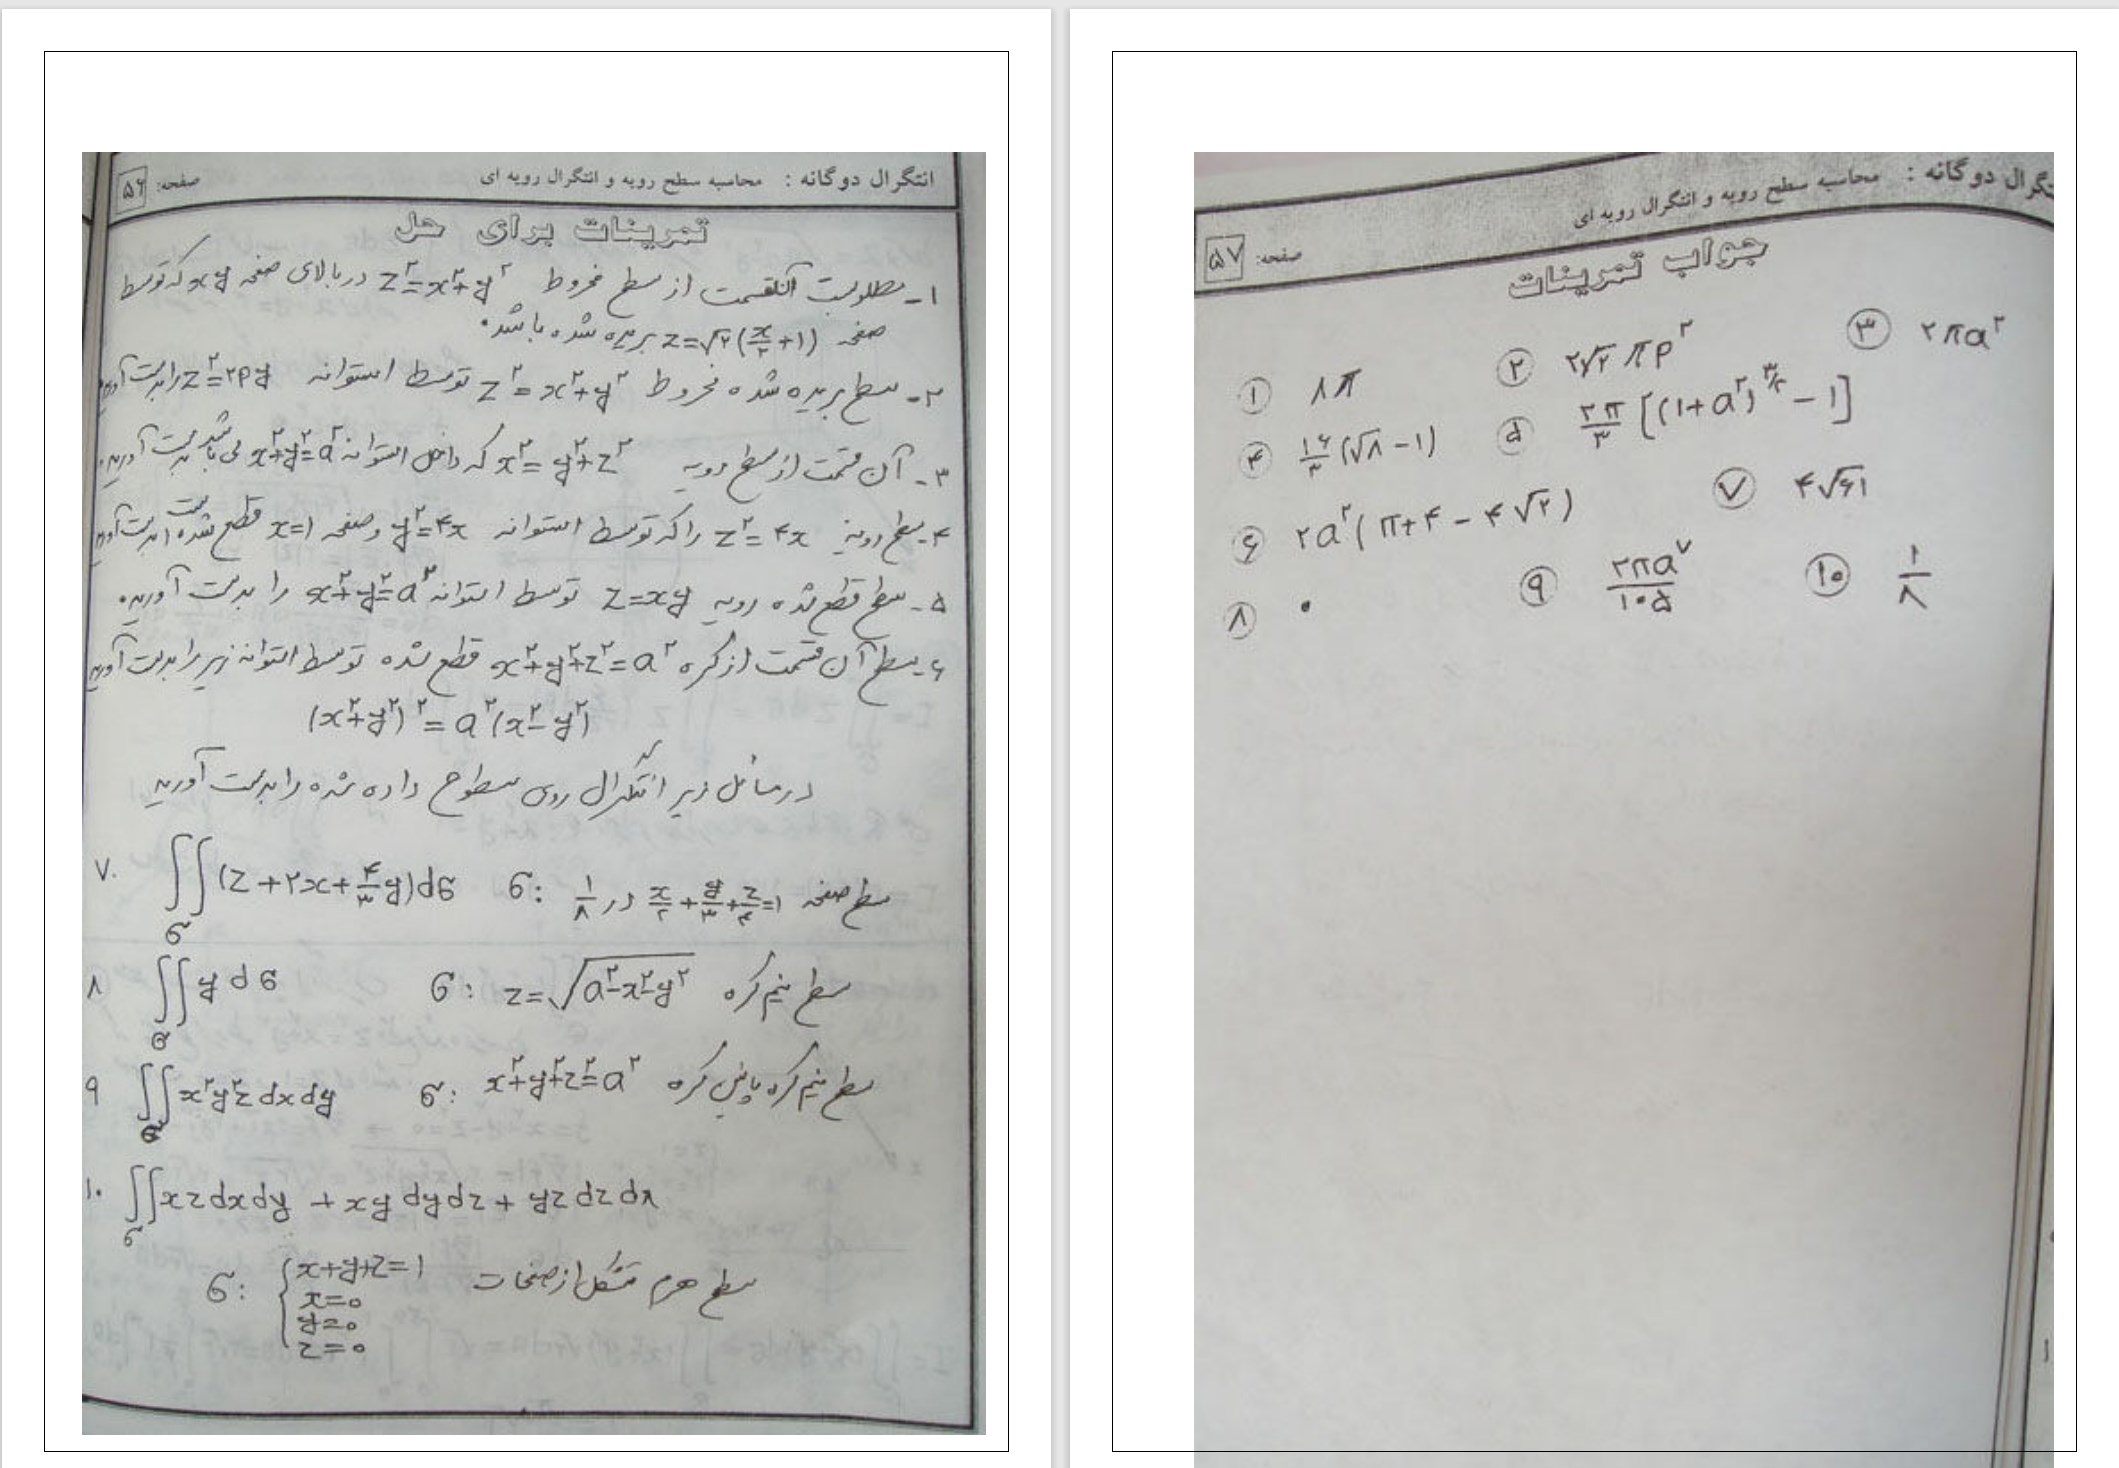 انتگرال دوگانه : محاسبه سطح رویه و انتگرال رویه ای صفحه: ۵۶
تمرینات برای حل
۱- مطلوبست آنقسمت از سطح مخروط z²=x²+y² در بالای صفحه xy که توسط
صفحه z=√۲(x/۲+۱) بریده شده باشد.
۲- سطح بریده شده مخروط z²=x²+y² توسط استوانه z²=۲py را بدست آورید
۳- آن قسمت از سطح رویه x²=y²+z² که داخل استوانه x²+y²=a² می باشد بدست آورید.
۴- سطح رویه z²=۴x را که توسط استوانه y²=۴x و صفحه x=۱ قطع شده است بدست آورید
۵- سطح قطع شده رویه z=xy توسط استوانه x²+y²=a² را بدست آورید.
۶- سطح آن قسمت از کره x²+y²+z²=a² قطع شده توسط استوانه زیر را بدست آورید
(x²+y²)²=a²(x²-y²)
در مسائل زیر انتگرال روی سطوح داده شده را بدست آورید
۷. ∬σ (z+۲x+۴/۳y)dσ σ: سطح صفحه x/۲+y/۳+z/۴=۱ در ۱/۸
۸ ∬σ y dσ σ: z=√(a²-x²-y²) سطح نیم کره
۹ ∬σ x²y²z dxdy σ: x²+y²+z²=a² سطح نیم کره پائین کره
۱۰. ∬σ xz dxdy + xy dydz + yz dz dx
σ: { x+y+z=۱ سطح هرم متشکل از صفحات
x=۰
y=۰
z=۰
گرال دوگانه : محاسبه سطح رویه و انتگرال رویه ای صفحه: ۵۷
جواب تمرینات
① ۸π ② ۲√۲ πp² ③ ۲πa²
④ ۱۶/۳(√۸-۱) ⑤ ۲π/۳[(۱+a²)^۳/۲-۱]
⑥ ۲a²(π+۴-۴√۲) ⑦ ۴√۶۱
⑧ ۰ ⑨ ۲πa⁷/۱۰۵ ⑩ ۱/۸